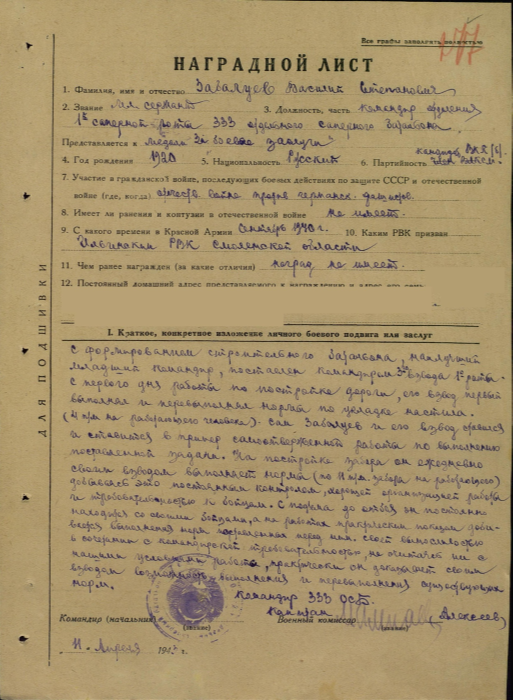 Все графы заполнять полностью
177
НАГРАДНОЙ ЛИСТ
1. Фамилия, имя и отчество Забалуев Василий Степанович
2. Звание мл. сержант 3. Должность, часть командир отделения
1й саперной роты 333 отдельного саперного батальона.
Представляется к медали „За боевые заслуги"
4. Год рождения 1920 5. Национальность Русский 6. Партийность кандидат ВКП/б/.
7. Участие в гражданской войне, последующих боевых действиях по защите СССР и отечественной
войне (где, когда) отечеств. война против германск. фашистов.
8. Имеет ли ранения и контузии в отечественной войне не имеет.
9. С какого времени в Красной Армии Сентябрь 1940 г. 10. Каким РВК призван
Ильинским РВК Смоленской области
11. Чем ранее награжден (за какие отличия) наград не имеет.
12. Постоянный домашний адрес представляемого к награждению и адрес его семьи
ДЛЯ ПОДШИВКИ
I. Краткое, конкретное изложение личного боевого подвига или заслуг
С формированием строительного батальона,
младший командир, поставлен командиром 3го взвода 1й роты.
С первого дня работы по постройке дороги, его взвод первый
выполнял и перевыполнял нормы по укладке настила.
(4 п/м на работающего человека). Сам Забалуев и его взвод
и ставится в пример самоотверженной работы по выполнению
поставленной задачи. На постройке забора он ежедневно
своим взводом выполняет нормы (по п/м. забора на работающего)
добиваясь это постоянным контролем, хорошей организацией работы
и требовательностью к бойцам. С подъема до отбоя он постоянно
находясь со своими бойцами, а на работах практическим показом
выполнения норм поставленных перед ним. Своей
в сочетании с командирской требовательностью, не считаясь ни с
какими условиями работы, практически он доказывает своим
взводом возможность выполнения и перевыполнения существующих
норм.
Командир 333 ОСБ.
Капитан (Алексеев)
Командир (начальник) Военный комиссар
(звание) (звание)
11 Апреля 194